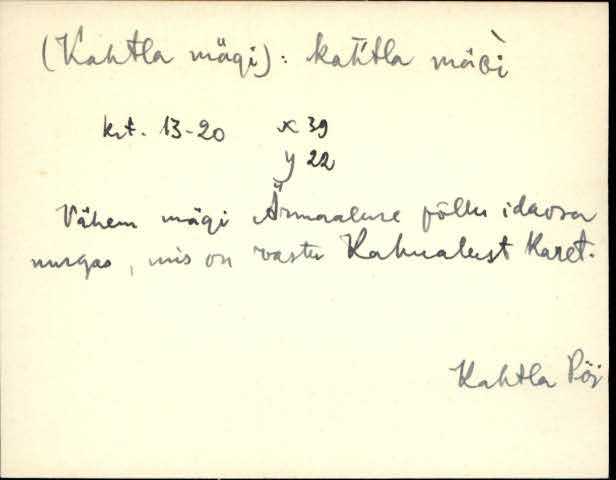 (Kahtla mägi): kahtla mäGì
krt. 13-20 x 39
y 22
Vähem mägi Ärmaaluse põllu idaosa
nurgas, mis on vastu Kahualust Karet.
Kahtla Pöi